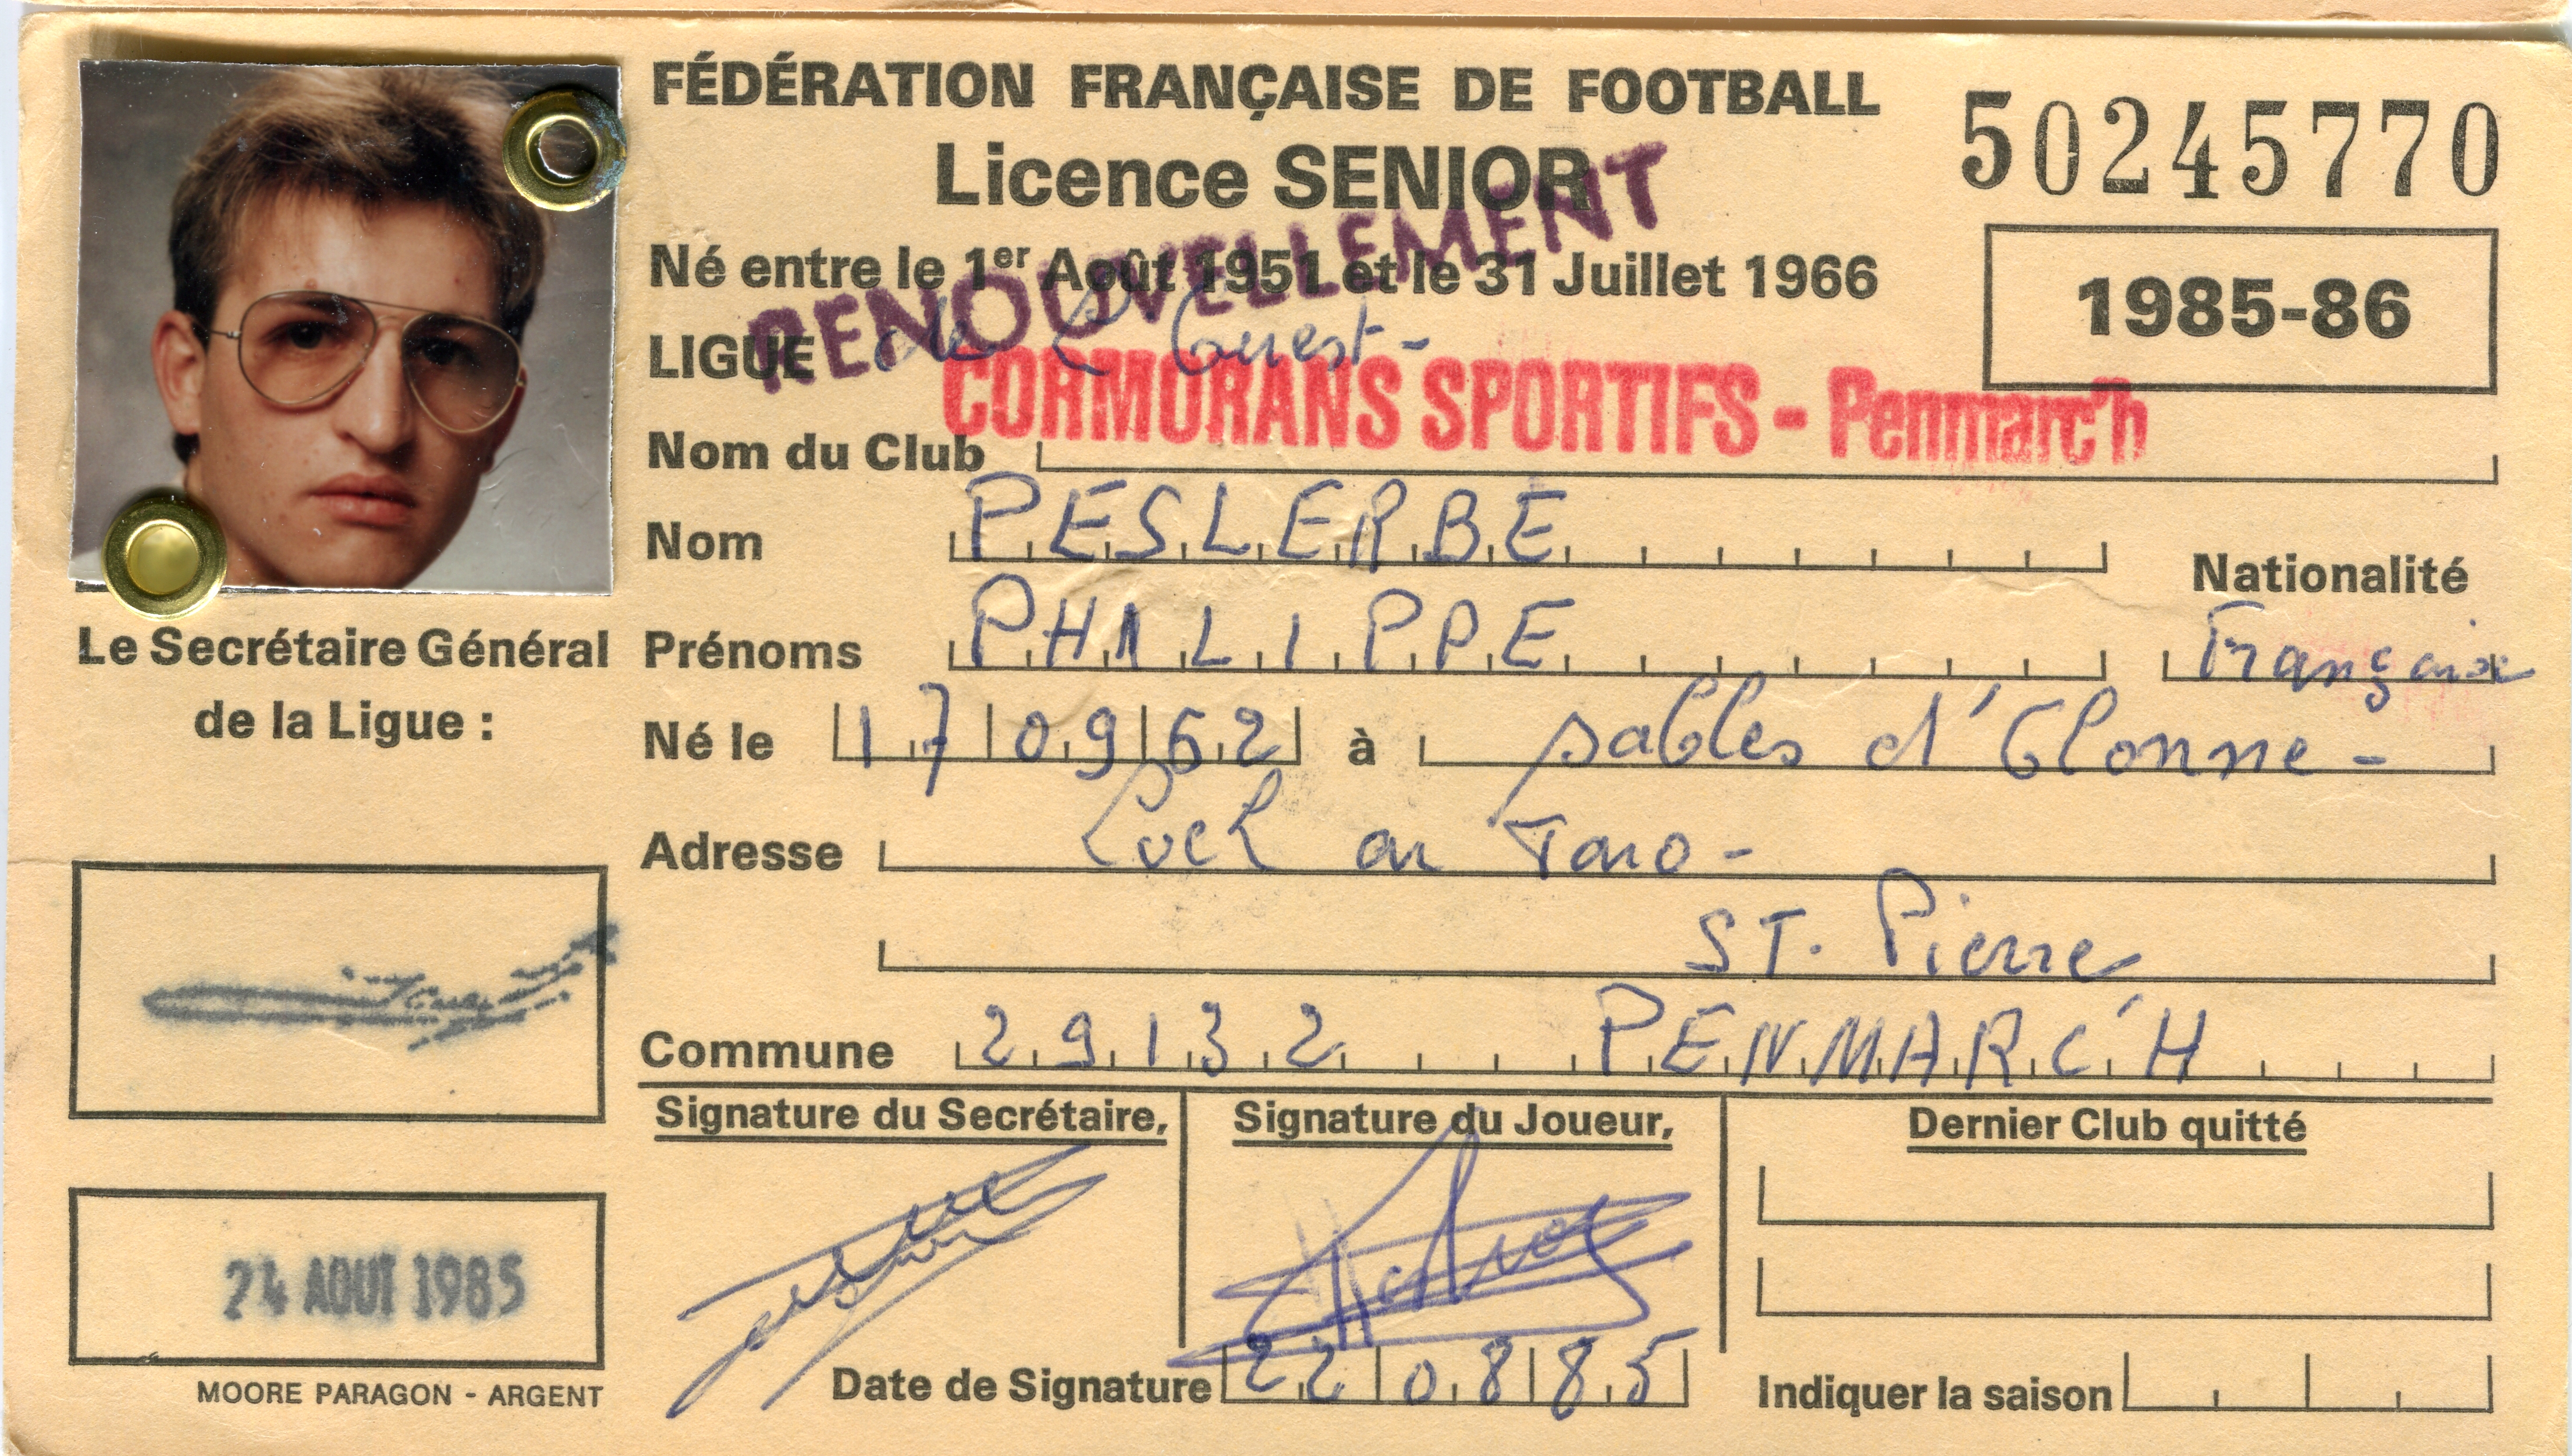 FÉDÉRATION FRANÇAISE DE FOOTBALL
50245770
Licence SENIOR
RENOUVELLEMENT
Né entre le 1er Août 1951 et le 31 Juillet 1966
1985-86
LIGUE de l'Ouest-
CORMORANS SPORTIFS - Penmarc'h
Nom du Club
Nom PESLERBE
Nationalité
Prénoms PHILIPPE
Française
Le Secrétaire Général
de la Ligue :
Né le 17 09 62 à sables d'Olonne-
Adresse
ST. Pierre
Commune 29132 PENMARC'H
Signature du Secrétaire,
Signature du Joueur,
Dernier Club quitté
24 AOUT 1985
Date de Signature 22 08 85
Indiquer la saison
MOORE PARAGON - ARGENT